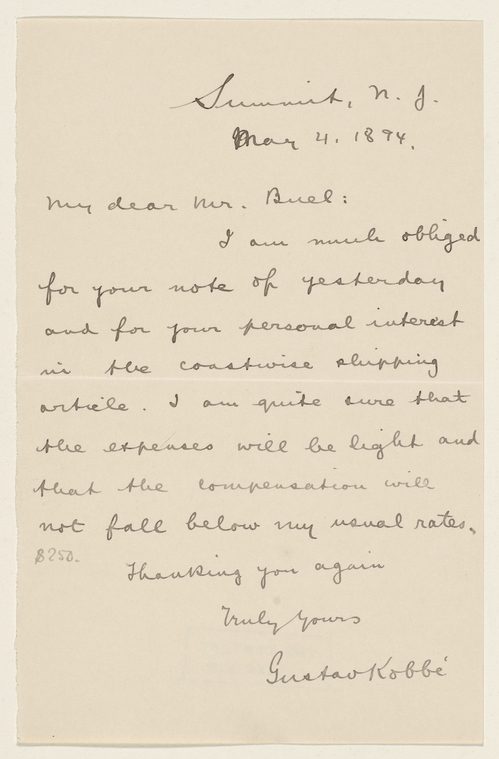 Summit, N. J.
May 4. 1894.
My dear Mr. Buel:
I am much obliged
for your note of yesterday
and for your personal interest
in the coastwise shipping
article. I am quite sure that
the expenses will be light and
that the compensation will
not fall below my usual rates.
$250.
Thanking you again
Truly Yours
Gustav Kobbé